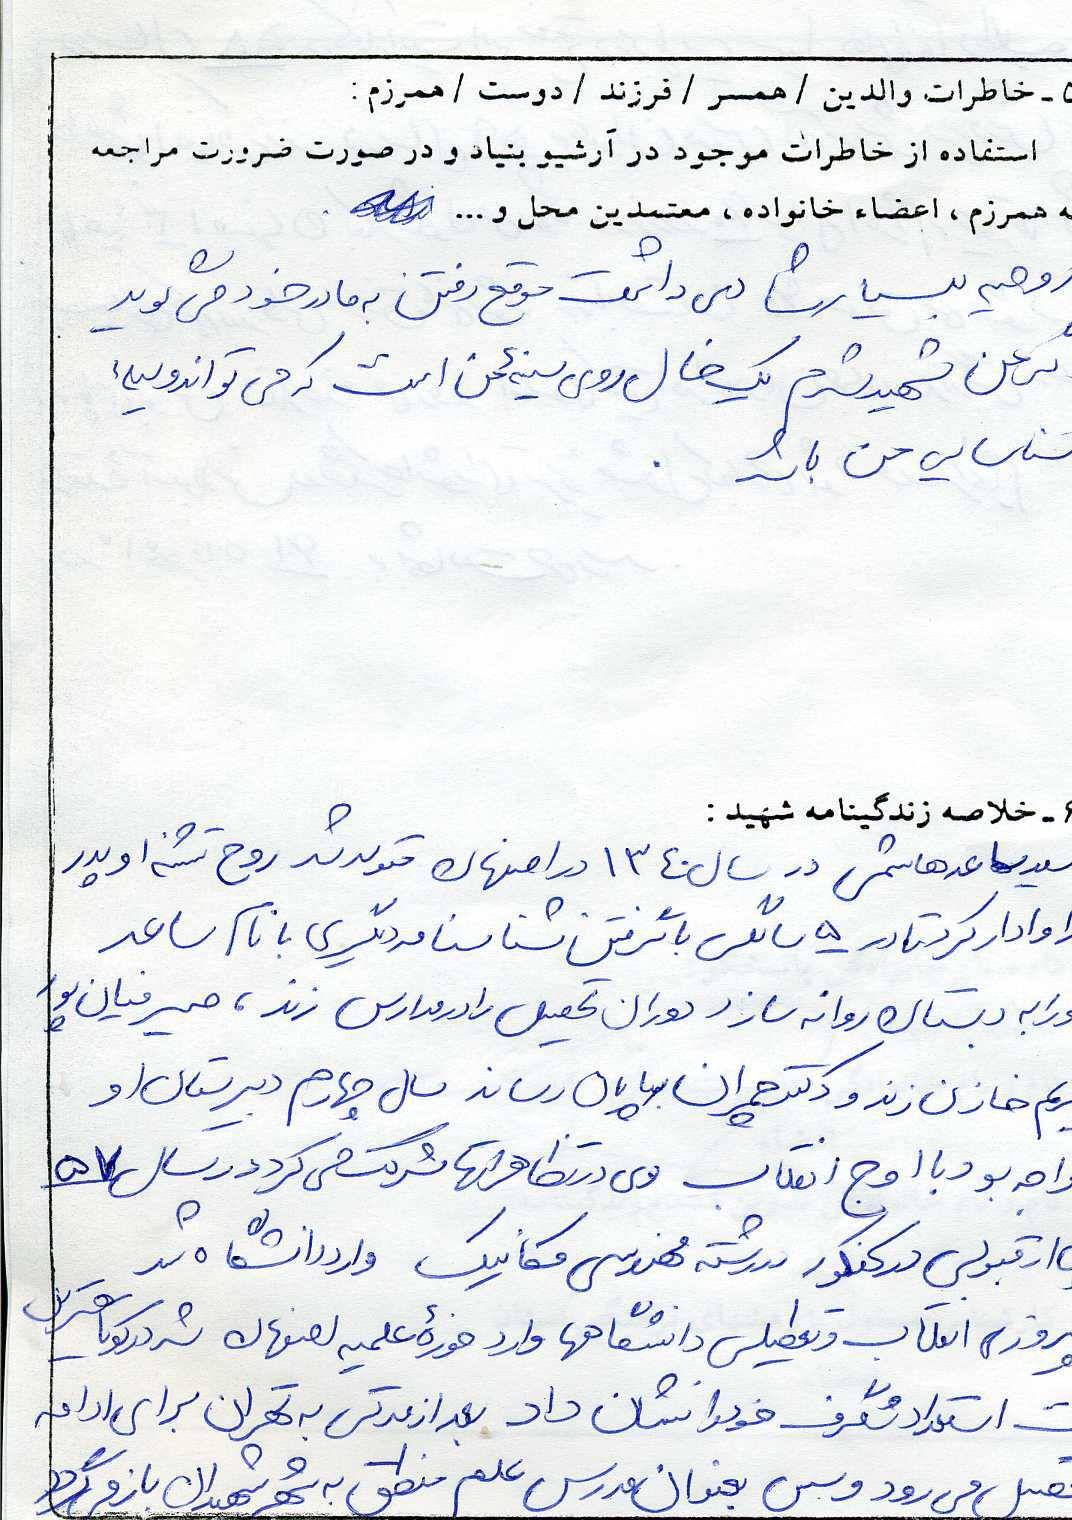 ۵ ـ خاطرات والدین / همسر / فرزند / دوست / همرزم :
استفاده از خاطرات موجود در آرشیو بنیاد و در صورت ضرورت مراجعه
به همرزم ، اعضاء خانواده ، معتمدین محل و ...
روحیه بسیار شادی داشت موقع رفتن به مادر خود می گوید
اگر من شهید شدم یک خال روی سینهٔ من است که می تواند وسیلهٔ
شناسایی من باشد .
۶ ـ خلاصه زندگینامه شهید :
سید ساعد هاشمی در سال ۱۳۴۰ در اصفهان متولد شد روح تشنه او پدر
را وادار کرد تا در ۵ سالگی با گرفتن شناسنامه دیگری با نام ساعد
او را به دبستان روانه سازد دوران تحصیل را در مدارس زند ،
خازن زند و دکتر چمران به پایان رساند سال چهارم دبیرستان او
مواجه بود با اوج انقلاب وی در تظاهراتها شرکت می کرد در سال ۵۷
با قبولی در کنکور در رشته مهندسی مکانیک وارد دانشگاه شد
پیروزی انقلاب و تعطیلی دانشگاهها وارد حوزهٔ علمیه اصفهان شد در کوتاهترین
استعداد شگرف خود را نشان داد بعد از مدتی به تهران برای ادامه
تحصیل می رود و سپس بعنوان مدرس علم منطق به شهر شهیدان باز می گردد